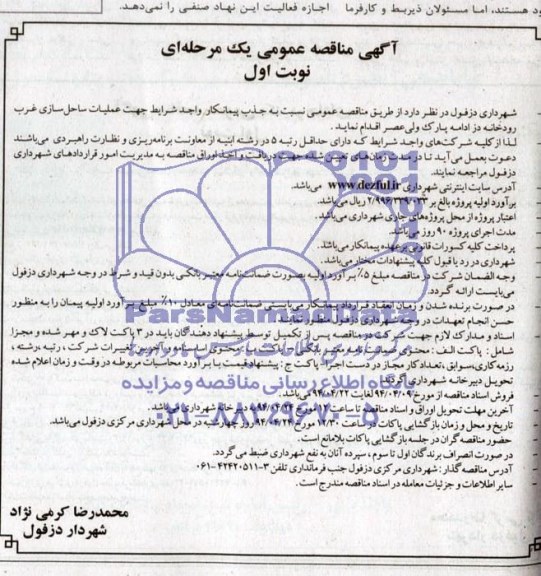 ود هستند، اما مسئولان ذیربط و کارفرما اجازه فعالیت این نهاد صنفی را نمی‌دهد.
آگهی مناقصه عمومی یک مرحله‌ای
نوبت اول
شهرداری دزفول در نظر دارد از طریق مناقصه عمومی نسبت به جذب پیمانکار واجد شرایط جهت عملیات ساحل‌سازی غرب
رودخانه دز ادامه پارک ولی‌عصر اقدام نماید.
لذا از کلیه شرکت‌های واجد شرایط که دارای حداقل رتبه ۵ در رشته ابنیه از معاونت برنامه‌ریزی و نظارت راهبردی می‌باشند
دعوت بعمل می‌آید تا در مدت زمان‌های تعیین شده جهت دریافت و اخذ اوراق مناقصه به مدیریت امور قراردادهای شهرداری
دزفول مراجعه نمایند.
آدرس سایت اینترنتی شهرداری www.dezful.ir می‌باشد.
برآورد اولیه پروژه بالغ بر ۲/۹۹۶/۳۳۹/۰۳۳ ریال می‌باشد.
اعتبار پروژه از محل پروژه‌های جاری شهرداری می‌باشد.
مدت اجرای پروژه ۹۰ روز می‌باشد.
پرداخت کلیه کسورات قانونی بر عهده پیمانکار می‌باشد.
شهرداری در رد یا قبول کلیه پیشنهادات مختار می‌باشد.
وجه الضمان شرکت در مناقصه مبلغ ۵٪ برآورد اولیه بصورت ضمانتنامه معتبر بانکی بدون قید و شرط در وجه شهرداری دزفول
می‌بایست ارائه گردد.
در صورت برنده شدن و زمان انعقاد قرارداد پیمانکار می‌بایستی ضمانتنامه‌ای معادل ۱۰٪ مبلغ برآورد اولیه پیمان را به منظور
حسن انجام تعهدات در وجه شهرداری دزفول منظور نماید.
اسناد و مدارک لازم جهت شرکت در مناقصه پس از تکمیل توسط پیشنهاد دهندگان باید در ۳ پاکت لاک و مهر شده و مجزا
شامل: پاکت الف: محتوی ضمانتنامه معتبر بانکی، پاکت ب: محتوی اساسنامه و آخرین تغییرات شرکت، رتبه، رشته،
رزمه کاری، سوابق، تعداد کار مجاز در دست اجرا، پاکت ج: پیشنهاد قیمت با برآورد محاسبات مربوطه در وقت و زمان اعلام شده
تحویل دبیرخانه شهرداری گردد.
فروش اسناد مناقصه از مورخ ۹۴/۰۳/۰۹ لغایت
آخرین مهلت تحویل اوراق و اسناد مناقصه تا ساعت به دبیرخانه شهرداری می‌باشد.
تاریخ و محل و زمان بازگشایی پاکات در ساعت ۱۲/۳۰ مورخ روز چهارشنبه در محل شهرداری مرکزی دزفول می‌باشد.
حضور مناقصه گران در جلسه بازگشایی پاکات بلامانع است.
در صورت انصراف برندگان اول تا سوم، سپرده آنان به نفع شهرداری ضبط می‌گردد.
آدرس مناقصه گذار: شهرداری مرکزی دزفول جنب فرمانداری تلفن ۳-۴۲۴۲۰۵۱۱-۰۶۱
سایر اطلاعات و جزئیات معامله در اسناد مناقصه مندرج است.
محمدرضا کرمی نژاد
شهردار دزفول
ParsNamadData
پایگاه اطلاع رسانی مناقصه و مزایده
۰۲۱-۸۸۳۴۹۶۷۰-۵